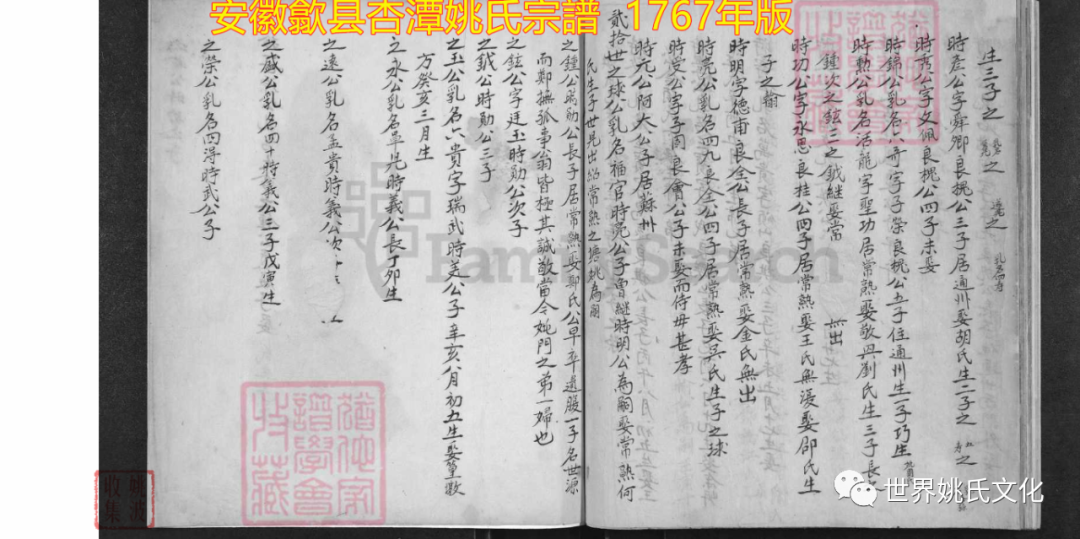 安徽歙县杏潭姚氏宗譜 1767年版
生三子之
時彥公字舜卿良挑公三子居通州娶胡氏生二子之
時夷公字文佩良挑公四子未娶
時錦公乳名六奇字子榮良挑公五子住通州生一子巧生
時勳公乳名活龍字聖功居常熟娶敬興劉氏生三子長
鍾次之鉉三之鉞継娶當 無出
時功公字永思良挂公四子居常熟娶王氏無浸娶邵氏生
子之
時明字德甫良全公長子居常熟娶金氏無出
時亮公乳名四九良全公四子居常熟娶吳氏生子之球
時定公字子周良會公子未娶而侍毋甚孝
時元公阿大公子居蘇州
貳拾世之球公乳名福官時亮公子曾継時明公為嗣娶常熟何
氏生子世晃出紹常熟之塘姚為嗣
之鍾公時勋公長子居常熟娶鄭氏公早卒遺服一子名世源
而鄭撫孤事翁皆極其誠敬當今姚門之第一婦也
之鉉公字廷玉時勋公次子
之鉞公時勋公三子
之玉公乳名六貴字瑞武時美公子辛亥八月初五生娶篁墩
方癸亥三月生
之永公乳名早児時義公長丁卯生
之遠公乳名孟貴時義公次
之盛公乳名四十時義公三子戊寅生
之榮公乳名四得時武公子
FamilySearch
譜學會
收藏
姚波
收集
世界姚氏文化